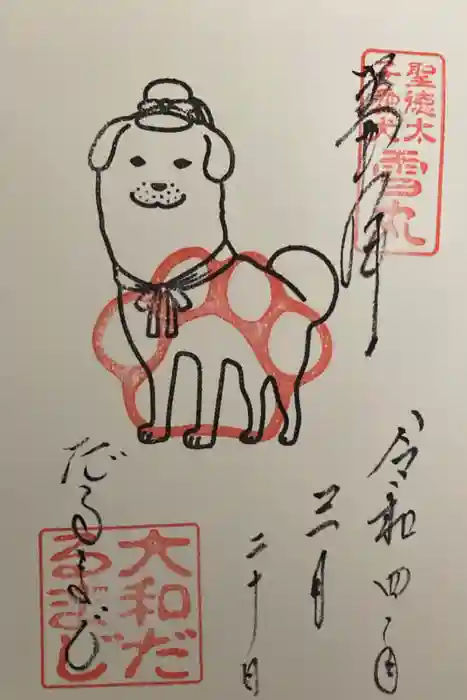 聖徳太
雪丸
令和四年
三月
二十日
だるまじ
大和だ
るまじ